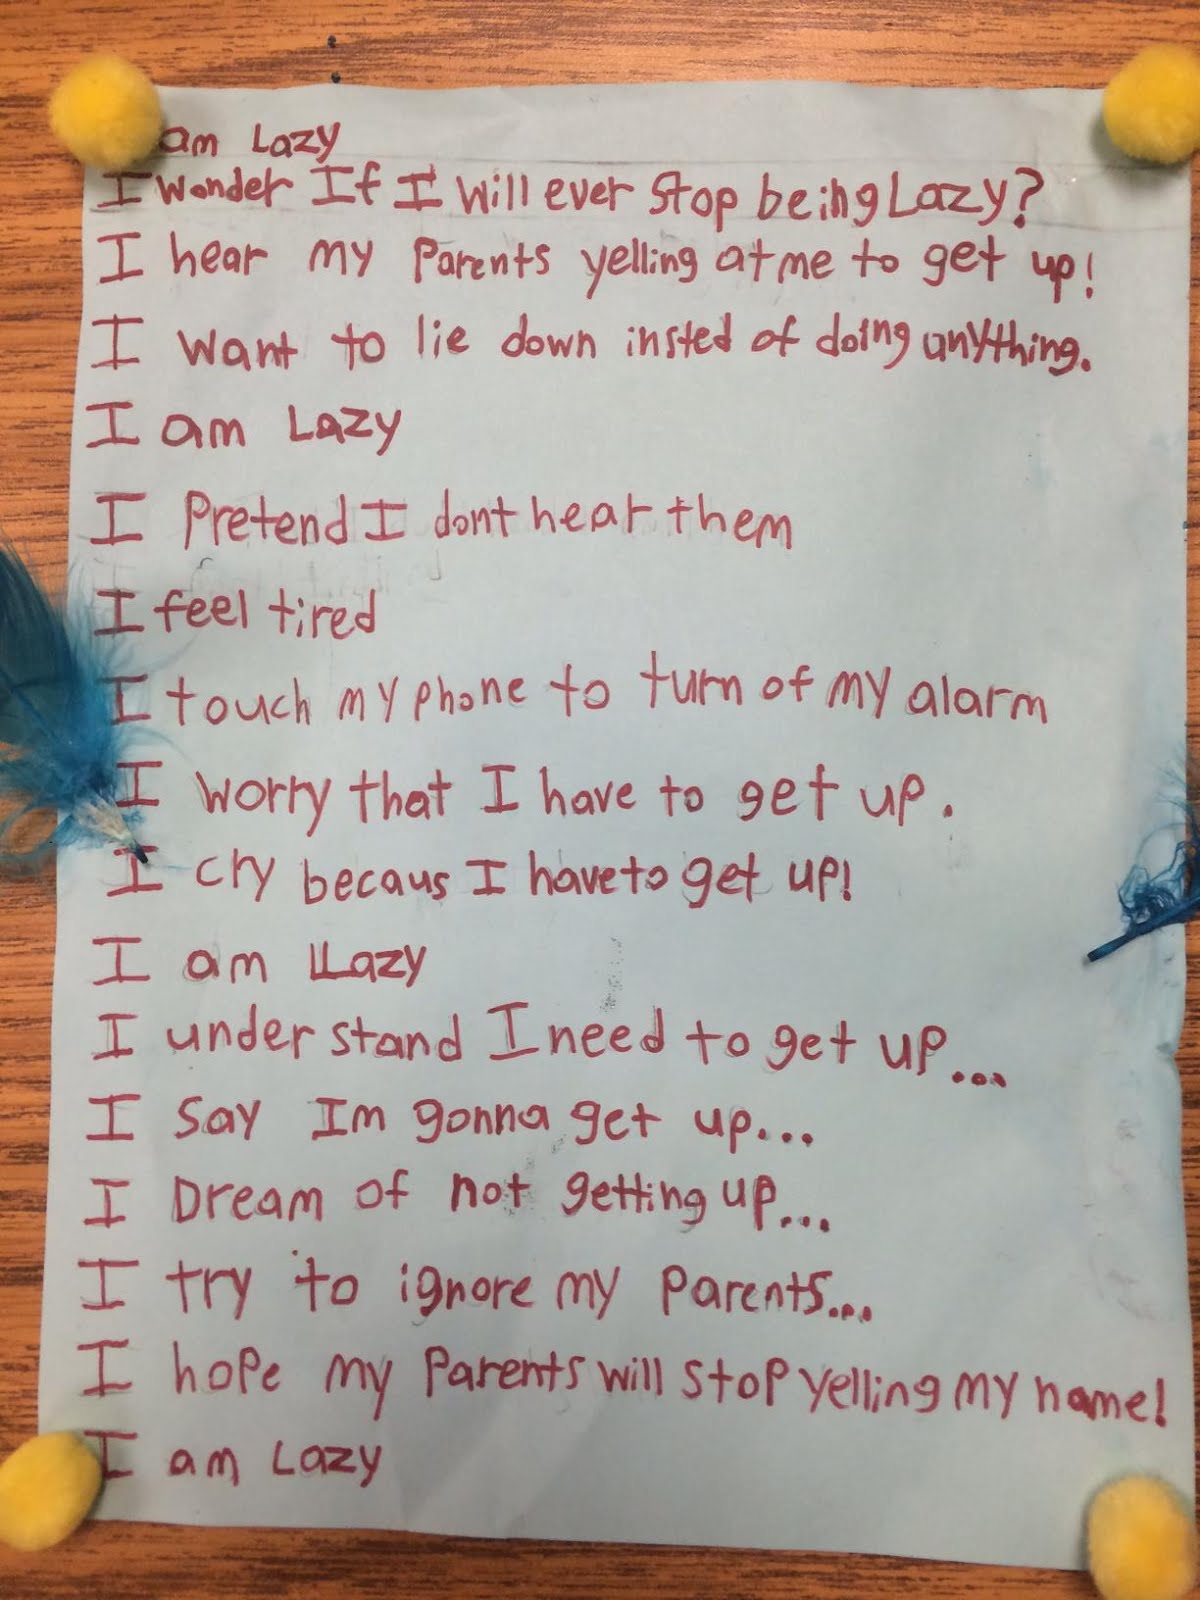 am Lazy
I wonder If I will ever stop being Lazy?
I hear my Parents yelling at me to get up!
I want to lie down insted of doing anything.
I am Lazy
I Pretend I dont hear them
I feel tired
I touch my phone to turn of my alarm
I worry that I have to get up.
I cry becaus I have to get up!
I am Lazy
I understand I need to get up...
I say Im gonna get up...
I Dream of not getting up...
I try to ignore my Parents...
I hope my Parents will stop yelling my name!
I am Lazy